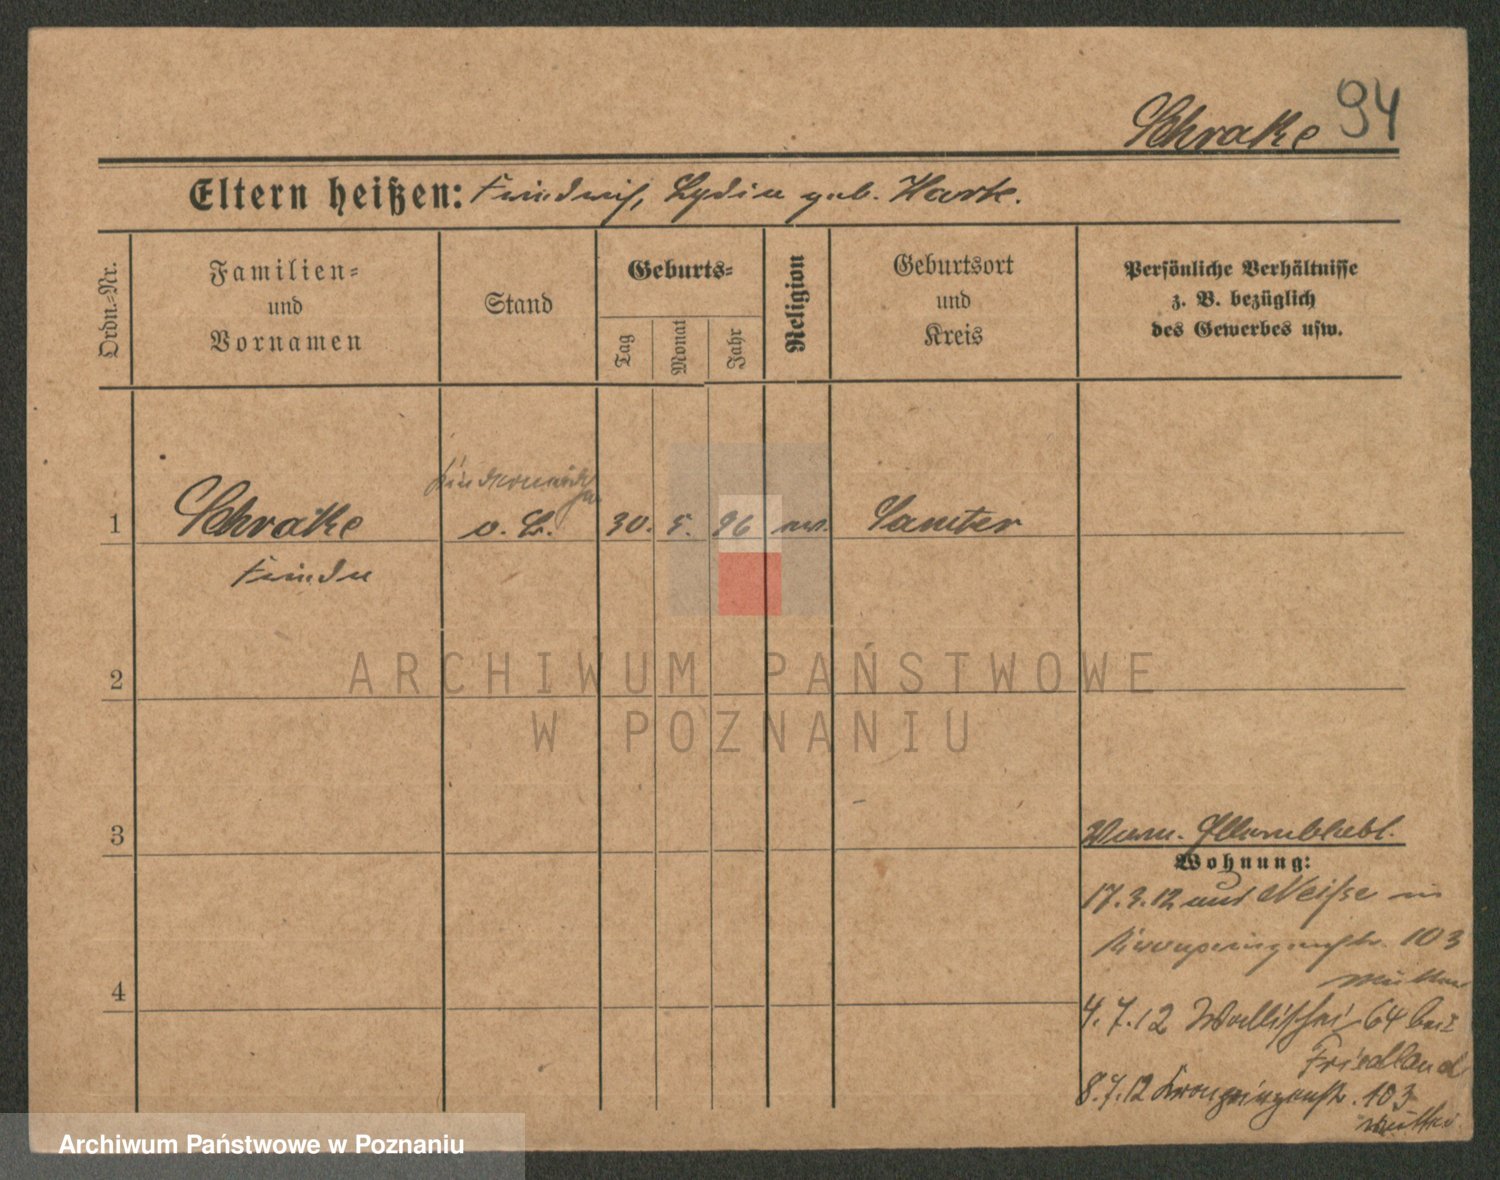 Schrake 94
Eltern heißen: Friedrich, Lydia geb. Harte.
Ordn.-Nr.
Familien-
und
Vornamen
Stand
Geburts-
Tag
Monat
Jahr
Religion
Geburtsort
und
Kreis
Persönliche Verhältnisse
z. B. bezüglich
des Gewerbes usw.
1
Schrake
Frieda
o. B.
30. 5. 96
Samter
2
3
4
Wohnung:
17.3.12 aus Neiße in
Kronprinzenstr. 103
4.7.12 Wallischei 64 bei
Friedland
8.7.12 Kronprinzenstr. 103
ARCHIWUM PAŃSTWOWE
W POZNANIU
Archiwum Państwowe w Poznaniu